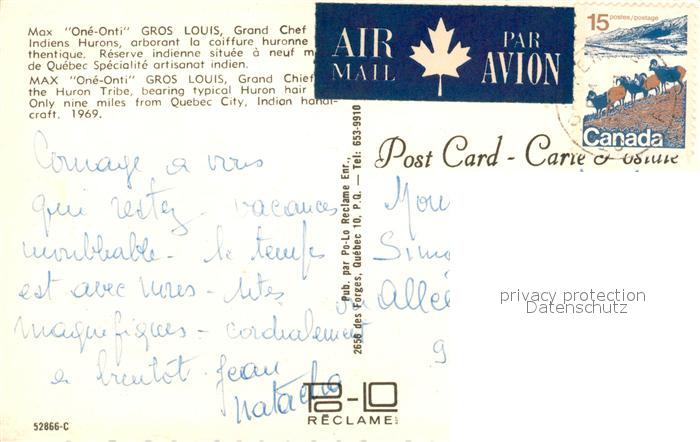 Max "Oné-Onti" GROS LOUIS, Grand Chef
Indiens Hurons, arborant la coiffure huronne
thentique. Réserve indienne située à neuf m
de Québec Spécialité artisanat indien.
MAX "Oné-Onti" GROS LOUIS, Grand Chief
the Huron Tribe, bearing typical Huron hair
Only nine miles from Quebec City, Indian handi-
craft. 1969.
AIR MAIL
PAR AVION
15 postes/postage
Canada
Post Card - Carte Postale
Courage a vous
qui restez. vacances
inoubliable - le temps
est avec nous - sites
magnifiques - cordialement
a bientôt Jean
Natacha
Pub. par Po-Lo Reclame Enr.,
2656 des Forges, Québec 10, P.Q. — Tel: 653-9910
Mou
Simo
allée
9
privacy protection
Datenschutz
PO-LO
RÉCLAME
52866-C